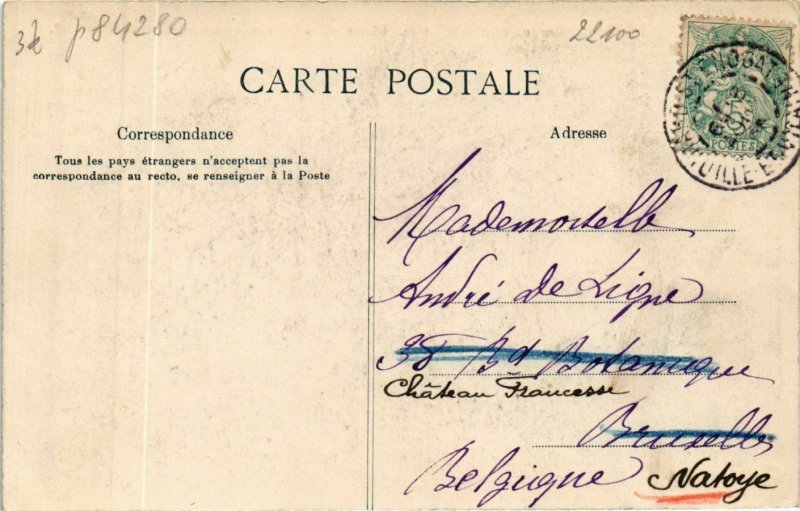 3k p84280
22100
CARTE POSTALE
Correspondance
Tous les pays étrangers n'acceptent pas la
correspondance au recto, se renseigner à la Poste
Adresse
POSTES
Mademoiselle
André de Ligne
38 Bd Botanique
Château Francesse
Bruxelles
Belgique
Natoye